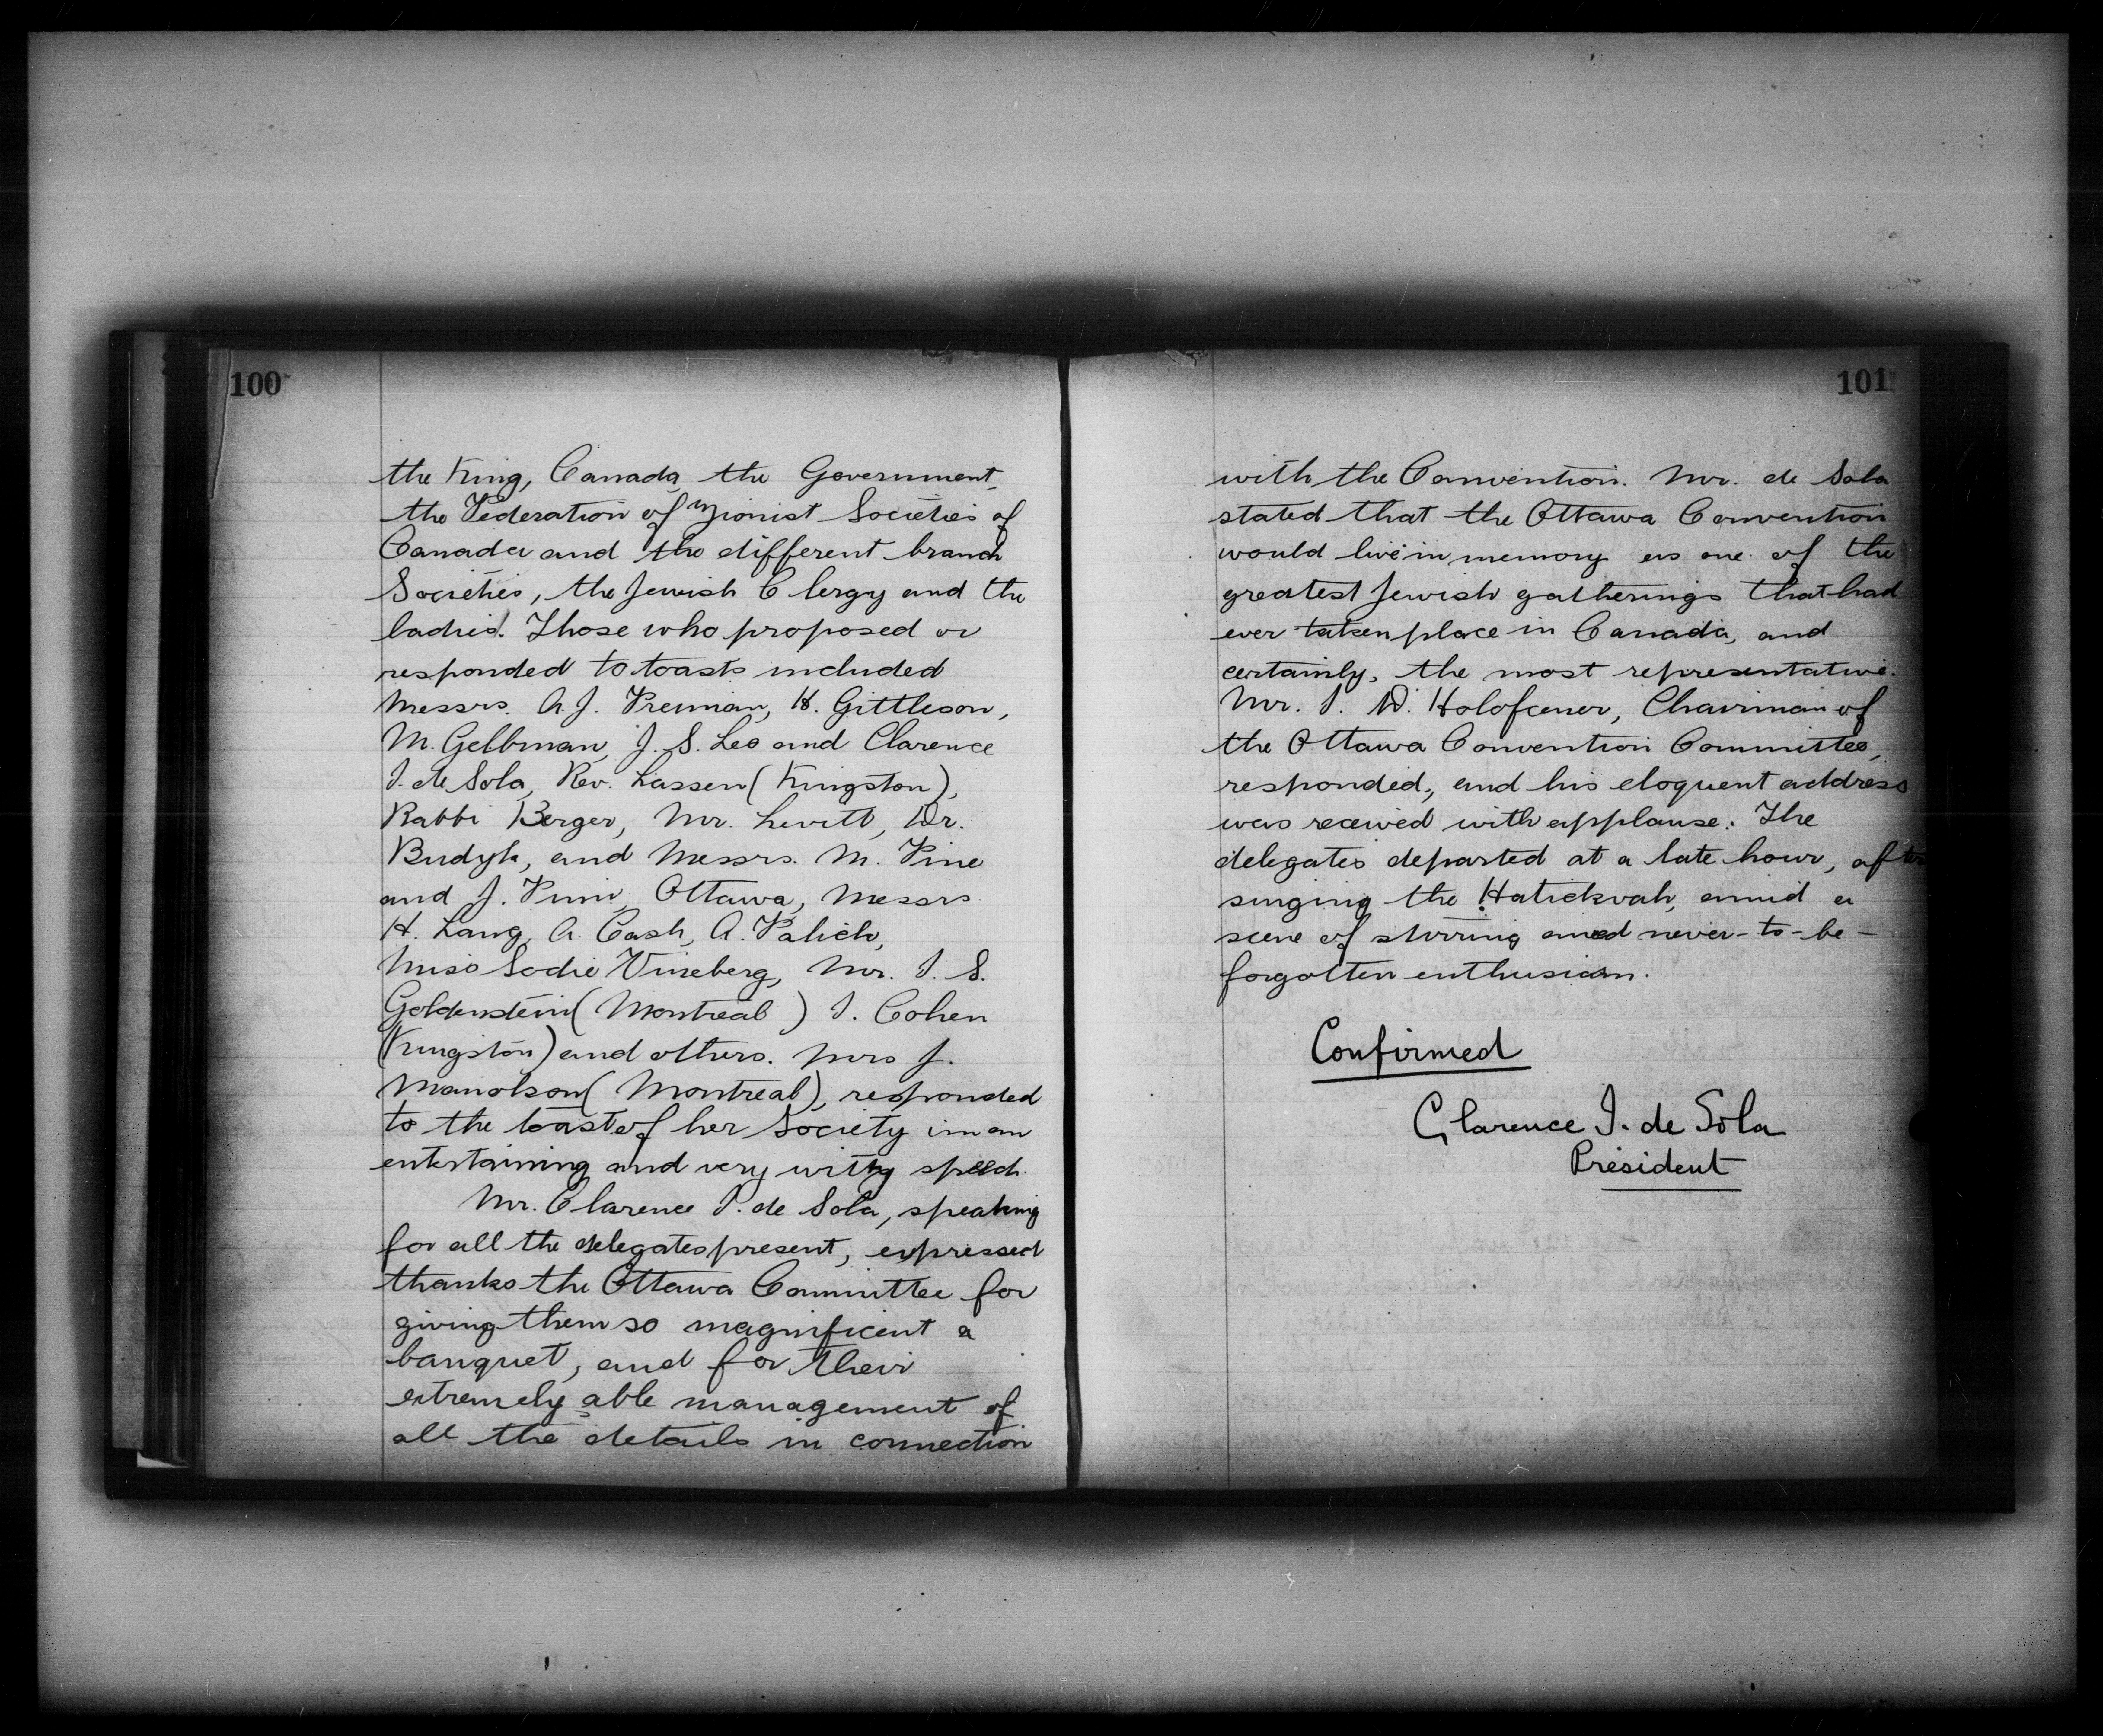 100
the King, Canada, the Government,
the Federation of Zionist Societies of
Canada and the different branch
Societies, the Jewish Clergy and the
ladies. Those who proposed or
responded to toasts included
Messrs. A.J. Freiman, H. Gittleson,
M. Gelbman, J. S. Leo and Clarence
I. de Sola, Rev. Lassen (Kingston),
Rabbi Berger, Mr. Levitt, Dr.
Budyk, and Messrs. M. Pine
and J. Ottawa, Messrs
H. Lang, A. Cash, A. Palich,
Miss Sadie Vineberg, Mr. I. S.
Goldenstein (Montreal) I. Cohen
(Kingston) and others. Mrs J.
Manolson (Montreal), responded
to the toast of her Society in an
entertaining and very witty speech.
Mr. Clarence I. de Sola, speaking
for all the delegates present, expressed
thanks the Ottawa Committee for
giving them so magnificent a
banquet, and for their
extremely able management of
all the details in connection
101
with the Convention. Mr. de Sola
stated that the Ottawa Convention
would live in memory as one of the
greatest Jewish gatherings that had
ever taken place in Canada, and
certainly, the most representative.
Mr. I. D. Holofcener, Chairman of
the Ottawa Convention Committee,
responded, and his eloquent address
was received with applause. The
delegates departed at a late hour, after
singing the Hatickvah, amid a
scene of stirring and never-to-be-
forgotten enthusiasm.
Confirmed
Clarence I. de Sola
President